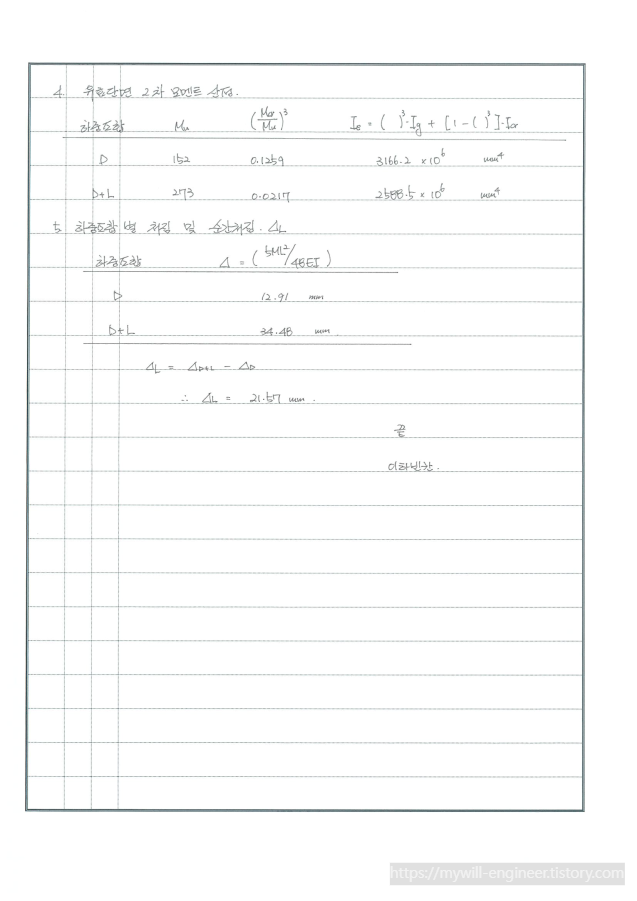 4. 유효단면 2차 모멘트 산정.
하중조합 Mu (Mcr/Mu)³ Ie = ( )³·Ig + [1-( )³]·Icr
D 152 0.1259 3166.2 ×10⁶ mm⁴
D+L 273 0.0217 2588.5 × 10⁶ mm⁴
5. 하중조합 별 처짐 및 순간처짐. △L
하중조합 △ = (5ML²/48EI)
D 12.91 mm
D+L 34.48 mm.
△L = △D+L - △D
∴ △L = 21.57 mm.
끝
이하빈칸.
https://mywill-engineer.tistory.com